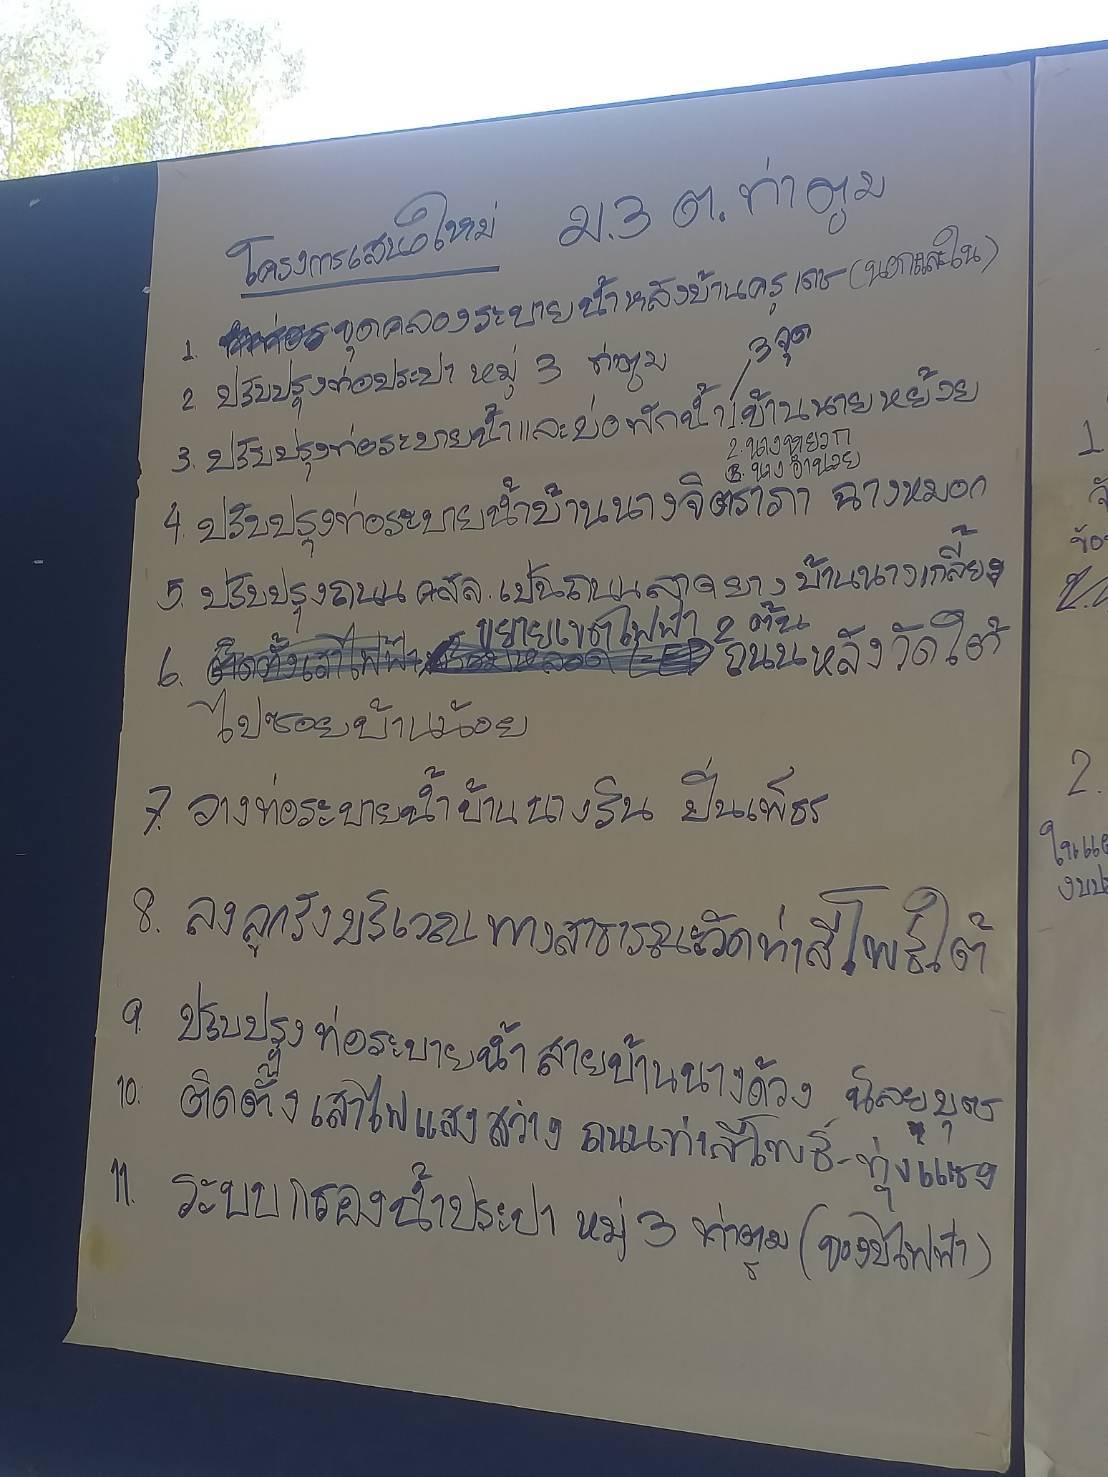 โครงการเสนอใหม่ ม.3 ต.ท่าตูม
1. ขุดคลองระบายน้ำหลังบ้านครูเดช (นอกและใน)
2. ปรับปรุงท่อประปา หมู่ 3 ท่าตูม
3 จุด
3. ปรับปรุงท่อระบายน้ำและบ่อพักน้ำ บ้านนายหย้วย
2. นาง
3. นางอำนวย
4. ปรับปรุงท่อระบายน้ำบ้านนางจิตราภา ฉางหมอก
5. ปรับปรุงถนน คสล. เป็นถนนลาดยาง บ้านนางเกลี้ยง
ขยายเขตไฟฟ้า 2 ต้น
6. ถนนหลังวัดใต้
ไปซอยบ้านน้อย
7. วางท่อระบายน้ำบ้านนางริน ปิ่นเพ็ชร
8. ลงลูกรังบริเวณทางสาธารณะวัดท่าสีโพธิ์ใต้
9. ปรับปรุงท่อระบายน้ำ สายบ้านนางด้วง น้อยบุตร
10. ติดตั้งเสาไฟแสงสว่าง ถนนท่าสีโพธิ์-ทุ่งแซง
11. ระบบกรองน้ำประปา หมู่ 3 ท่าตูม (ของปิไฟฟ้า)
1.
2.